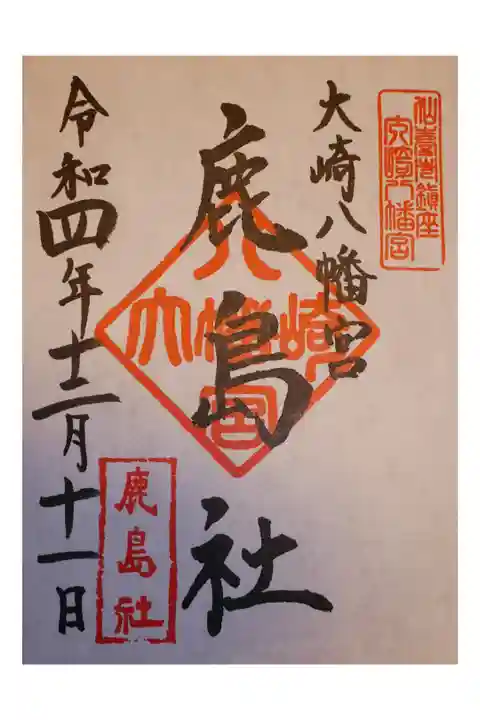 仙臺市鎮座
大崎八幡宮
大崎八幡宮
鹿島社
大崎八幡宮
鹿島社
令和四年十二月十一日